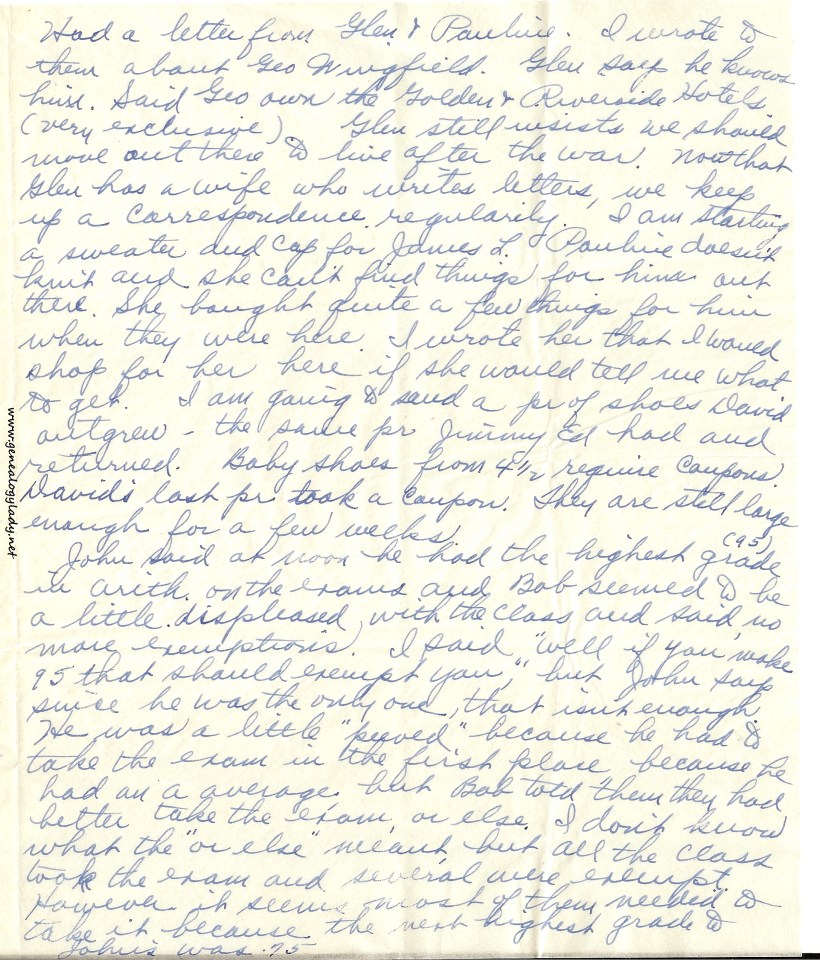 Had a letter from Glen & Pauline. I wrote to
them about Geo Wingfield. Glen says he knows
him. Said Geo own the Golden & Riverside Hotels
(very exclusive) Glen still insists we should
move out there to live after the war. Now that
Glen has a wife who writes letters, we keep
up a correspondence regularily. I am starting
a sweater and cap for James L. Pauline doesn't
knit and she can't find things for him out
there. She bought quite a few things for him
when they were here. I wrote her that I would
shop for her here if she would tell me what
to get. I am going to send a pr of shoes David
outgrew - the same pr Jimmy Ed had and
returned. Baby shoes from 4½ require coupons.
David's last pr took a coupon. They are still large
enough for a few weeks.
John said at noon he had the highest grade (95)
in arith. on the exams and Bob seemed to be
a little displeased with the class and said no
more exemptions. I said "well if you make
95 that should exempt you," but John says
since he was the only one, that isn't enough
He was a little "peeved" because he had to
take the exam in the first place because he
had an a average but Bob told them they had
better take the exam, or else. I don't know
what the "or else" meant but all the class
took the exam and several were exempt.
However it seems most of them needed to
take it because the next highest grade to
John's was 75
www.genealogylady.net